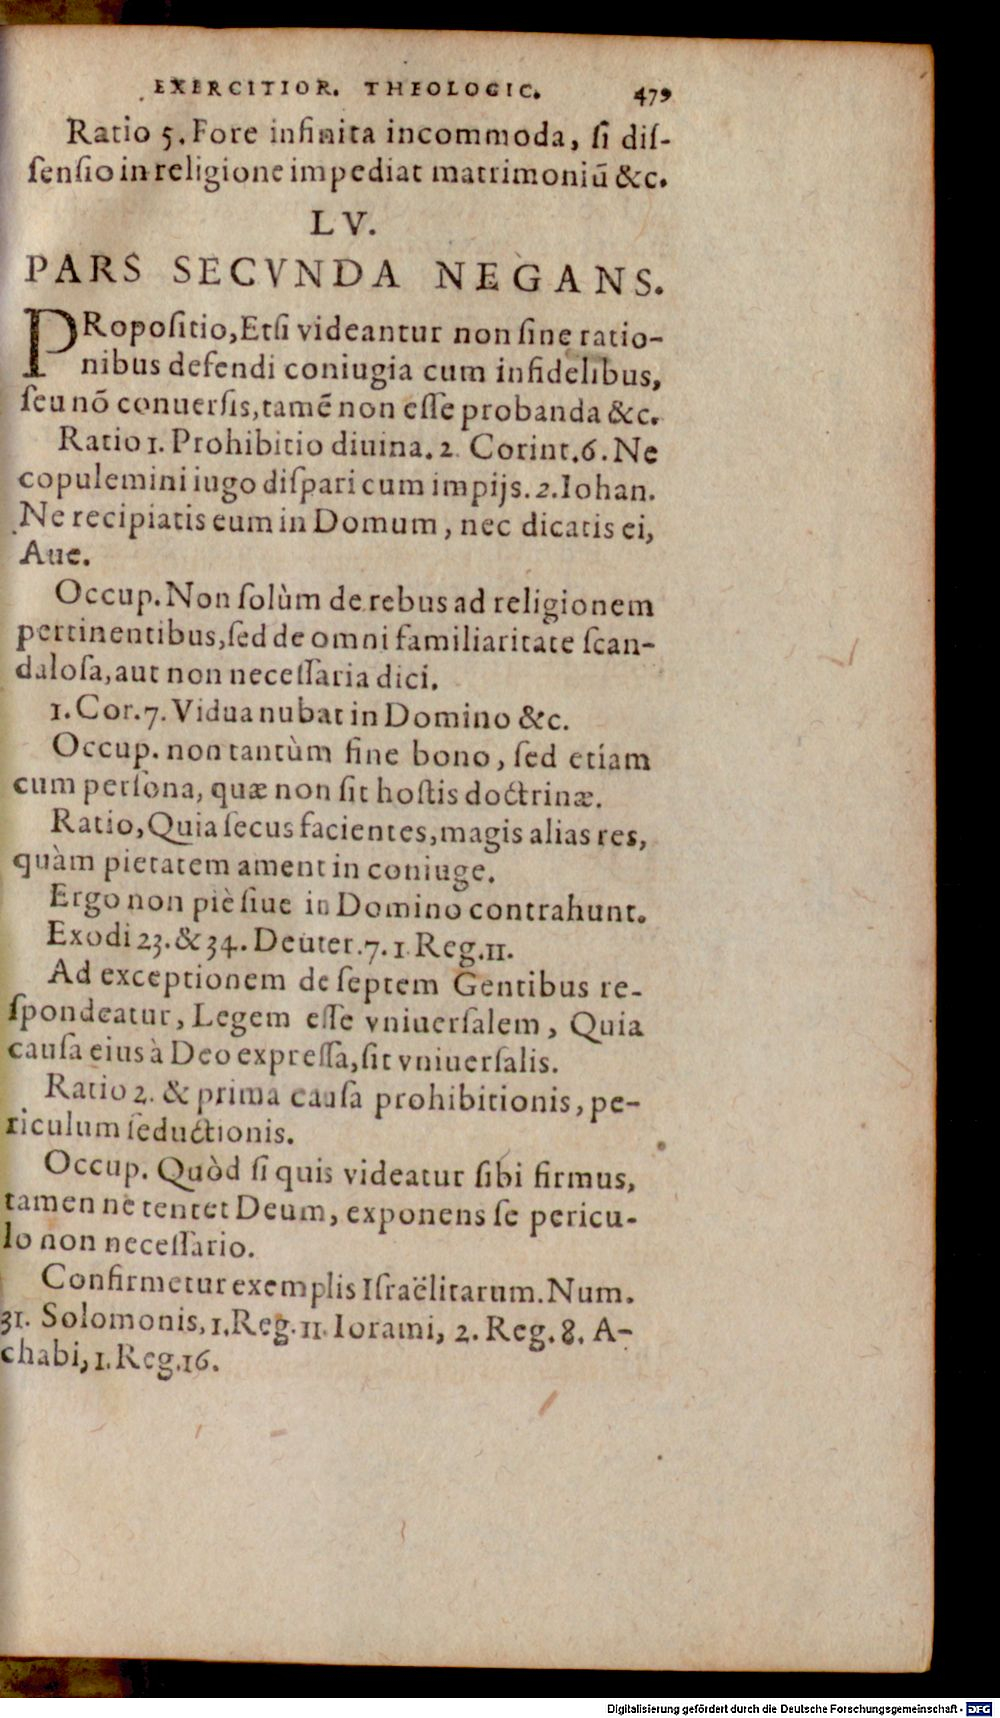 EXERCITIOR. THEOLOGIC. 479
Ratio 5. Fore infinita incommoda, ſi diſ-
ſenſio in religione impediat matrimoniũ &c.
LV.
PARS SECVNDA NEGANS.
PRopoſitio, Etſi videantur non ſine ratio-
nibus defendi coniugia cum infidelibus,
ſeu nõ conuerſis, tamẽ non eſſe probanda &c.
Ratio 1. Prohibitio diuina. 2. Corint. 6. Ne
copulemini iugo diſpari cum impijs. 2. Iohan.
Ne recipiatis eum in Domum, nec dicatis ei,
Aue.
Occup. Non ſolùm de rebus ad religionem
pertinentibus, ſed de omni familiaritate ſcan-
daloſa, aut non neceſſaria dici.
1. Cor. 7. Vidua nubat in Domino &c.
Occup. non tantùm fine bono, ſed etiam
cum perſona, quæ non ſit hoſtis doctrinæ.
Ratio, Quia ſecus facientes, magis alias res,
quàm pietatem ament in coniuge.
Ergo non piè ſiue in Domino contrahunt.
Exodi 23. & 34. Deuter. 7. 1. Reg. 11.
Ad exceptionem de ſeptem Gentibus re-
ſpondeatur, Legem eſſe vniuerſalem, Quia
cauſa eius à Deo expreſſa, ſit vniuerſalis.
Ratio 2. & prima cauſa prohibitionis, pe-
riculum ſeductionis.
Occup. Quòd ſi quis videatur ſibi firmus,
tamen ne tentet Deum, exponens ſe pericu-
lo non neceſſario.
Confirmetur exemplis Iſraëlitarum. Num.
31. Solomonis, 1. Reg. 11. Iorami, 2. Reg. 8. A-
chabi, 1. Reg. 16.
Digitalisierung gefördert durch die Deutsche Forschungsgemeinschaft - DFG